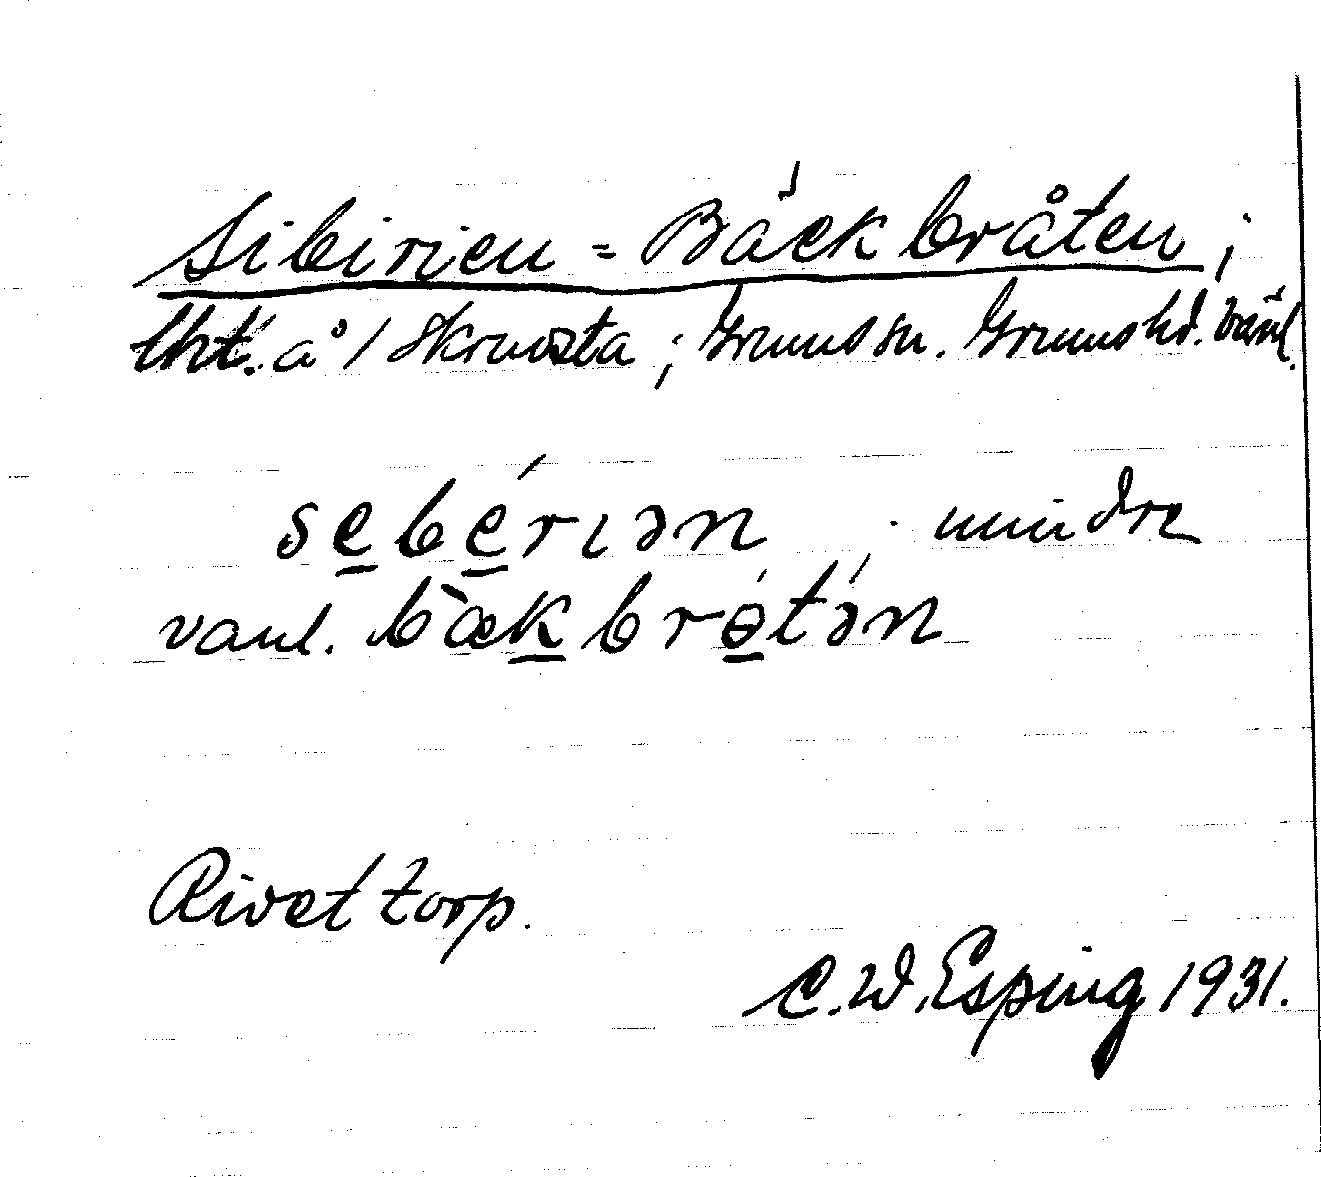 Sibirien = Bäckbråten;
lht. å 1 Skruvsta; Grums sn. Grums hd. Värml.
sebérıən, mindre
vanl. bækbrɵ́tə́n
Rivet torp.
C.W. Esping 1931.